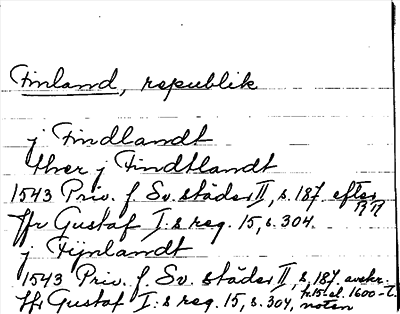 Finland, republik
j Findlandt
ther j Findtlandt
1543 Priv. f. Sv. städer II, s. 187 efter RR
ffr Gustaf I:s reg. 15, s. 304.
j Fijnlandt
1543 Priv. f. Sv. städer II, s. 187, avskr.
fr. 15- el. 1600-t.
ffr Gustaf I:s reg. 15, s. 304, noten